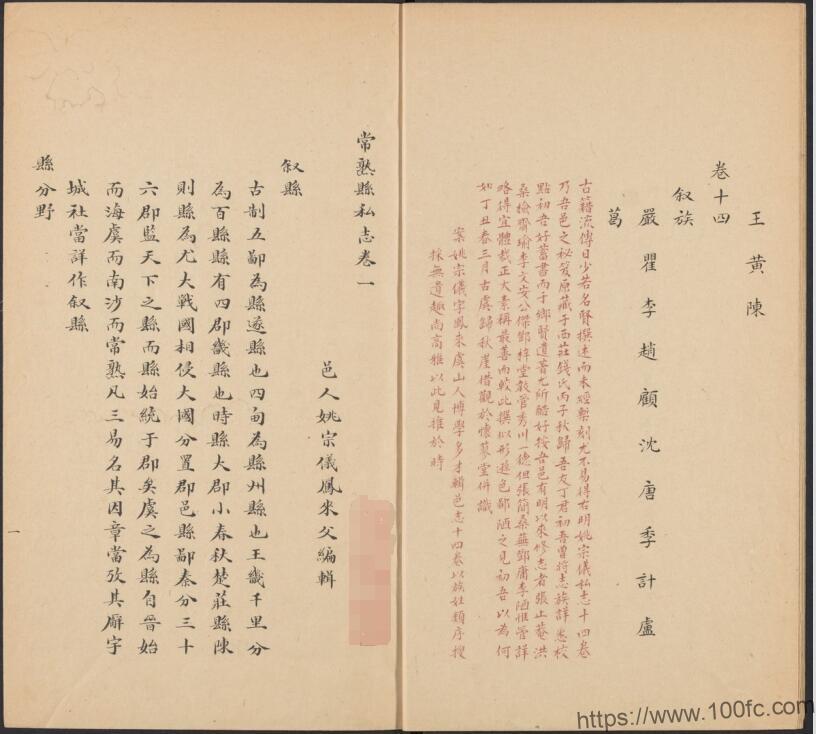 王 黄 陳
卷十四
叙族
嚴 瞿 李 趙 顧 沈 唐 季 計 盧
葛
古籍流傳日少若名賢撰述而未經槧刻尤不易得右明姚宗儀私志十四卷
乃吾邑之秘笈原藏于西莊錢氏丙子秋歸吾友丁君初吾曽将志族詳悉校
點初吾好蓄書而于鄉賢遺著尤所酷好按吾邑有明以來修志者張止菴洪
桑檢齋瑜李文安公傑鄧梓堂韍管秀川一德但張簡桑蕪鄧庸李陋惟管詳
略得宜體裁正大素稱最善而較此撰似形遜色鄙陋之見初吾以為何
如丁丑春三月古虞歸秋崖借觀於懷蓼堂併識
案姚宗儀字鳳來虞山人博學多才輯邑志十四卷以族姓類序搜
採無遺趣尚高雅以此見推於時
常熟縣私志卷一
邑人姚宗儀鳳來父編輯
叙縣
古制五鄙為縣遂縣也四甸為縣州縣也王畿千里分
為百縣縣有四郡畿縣也時縣大郡小春秋楚莊縣陳
則縣為尤大戰國相侵大國分置郡邑縣鄙秦分三十
六郡監天下之縣而縣始統于郡矣虞之為縣自晉始
而海虞而南沙而常熟凡三易名其因章當攷其廨宇
城社當詳作叙縣
縣分野
一
https://www.100fc.com